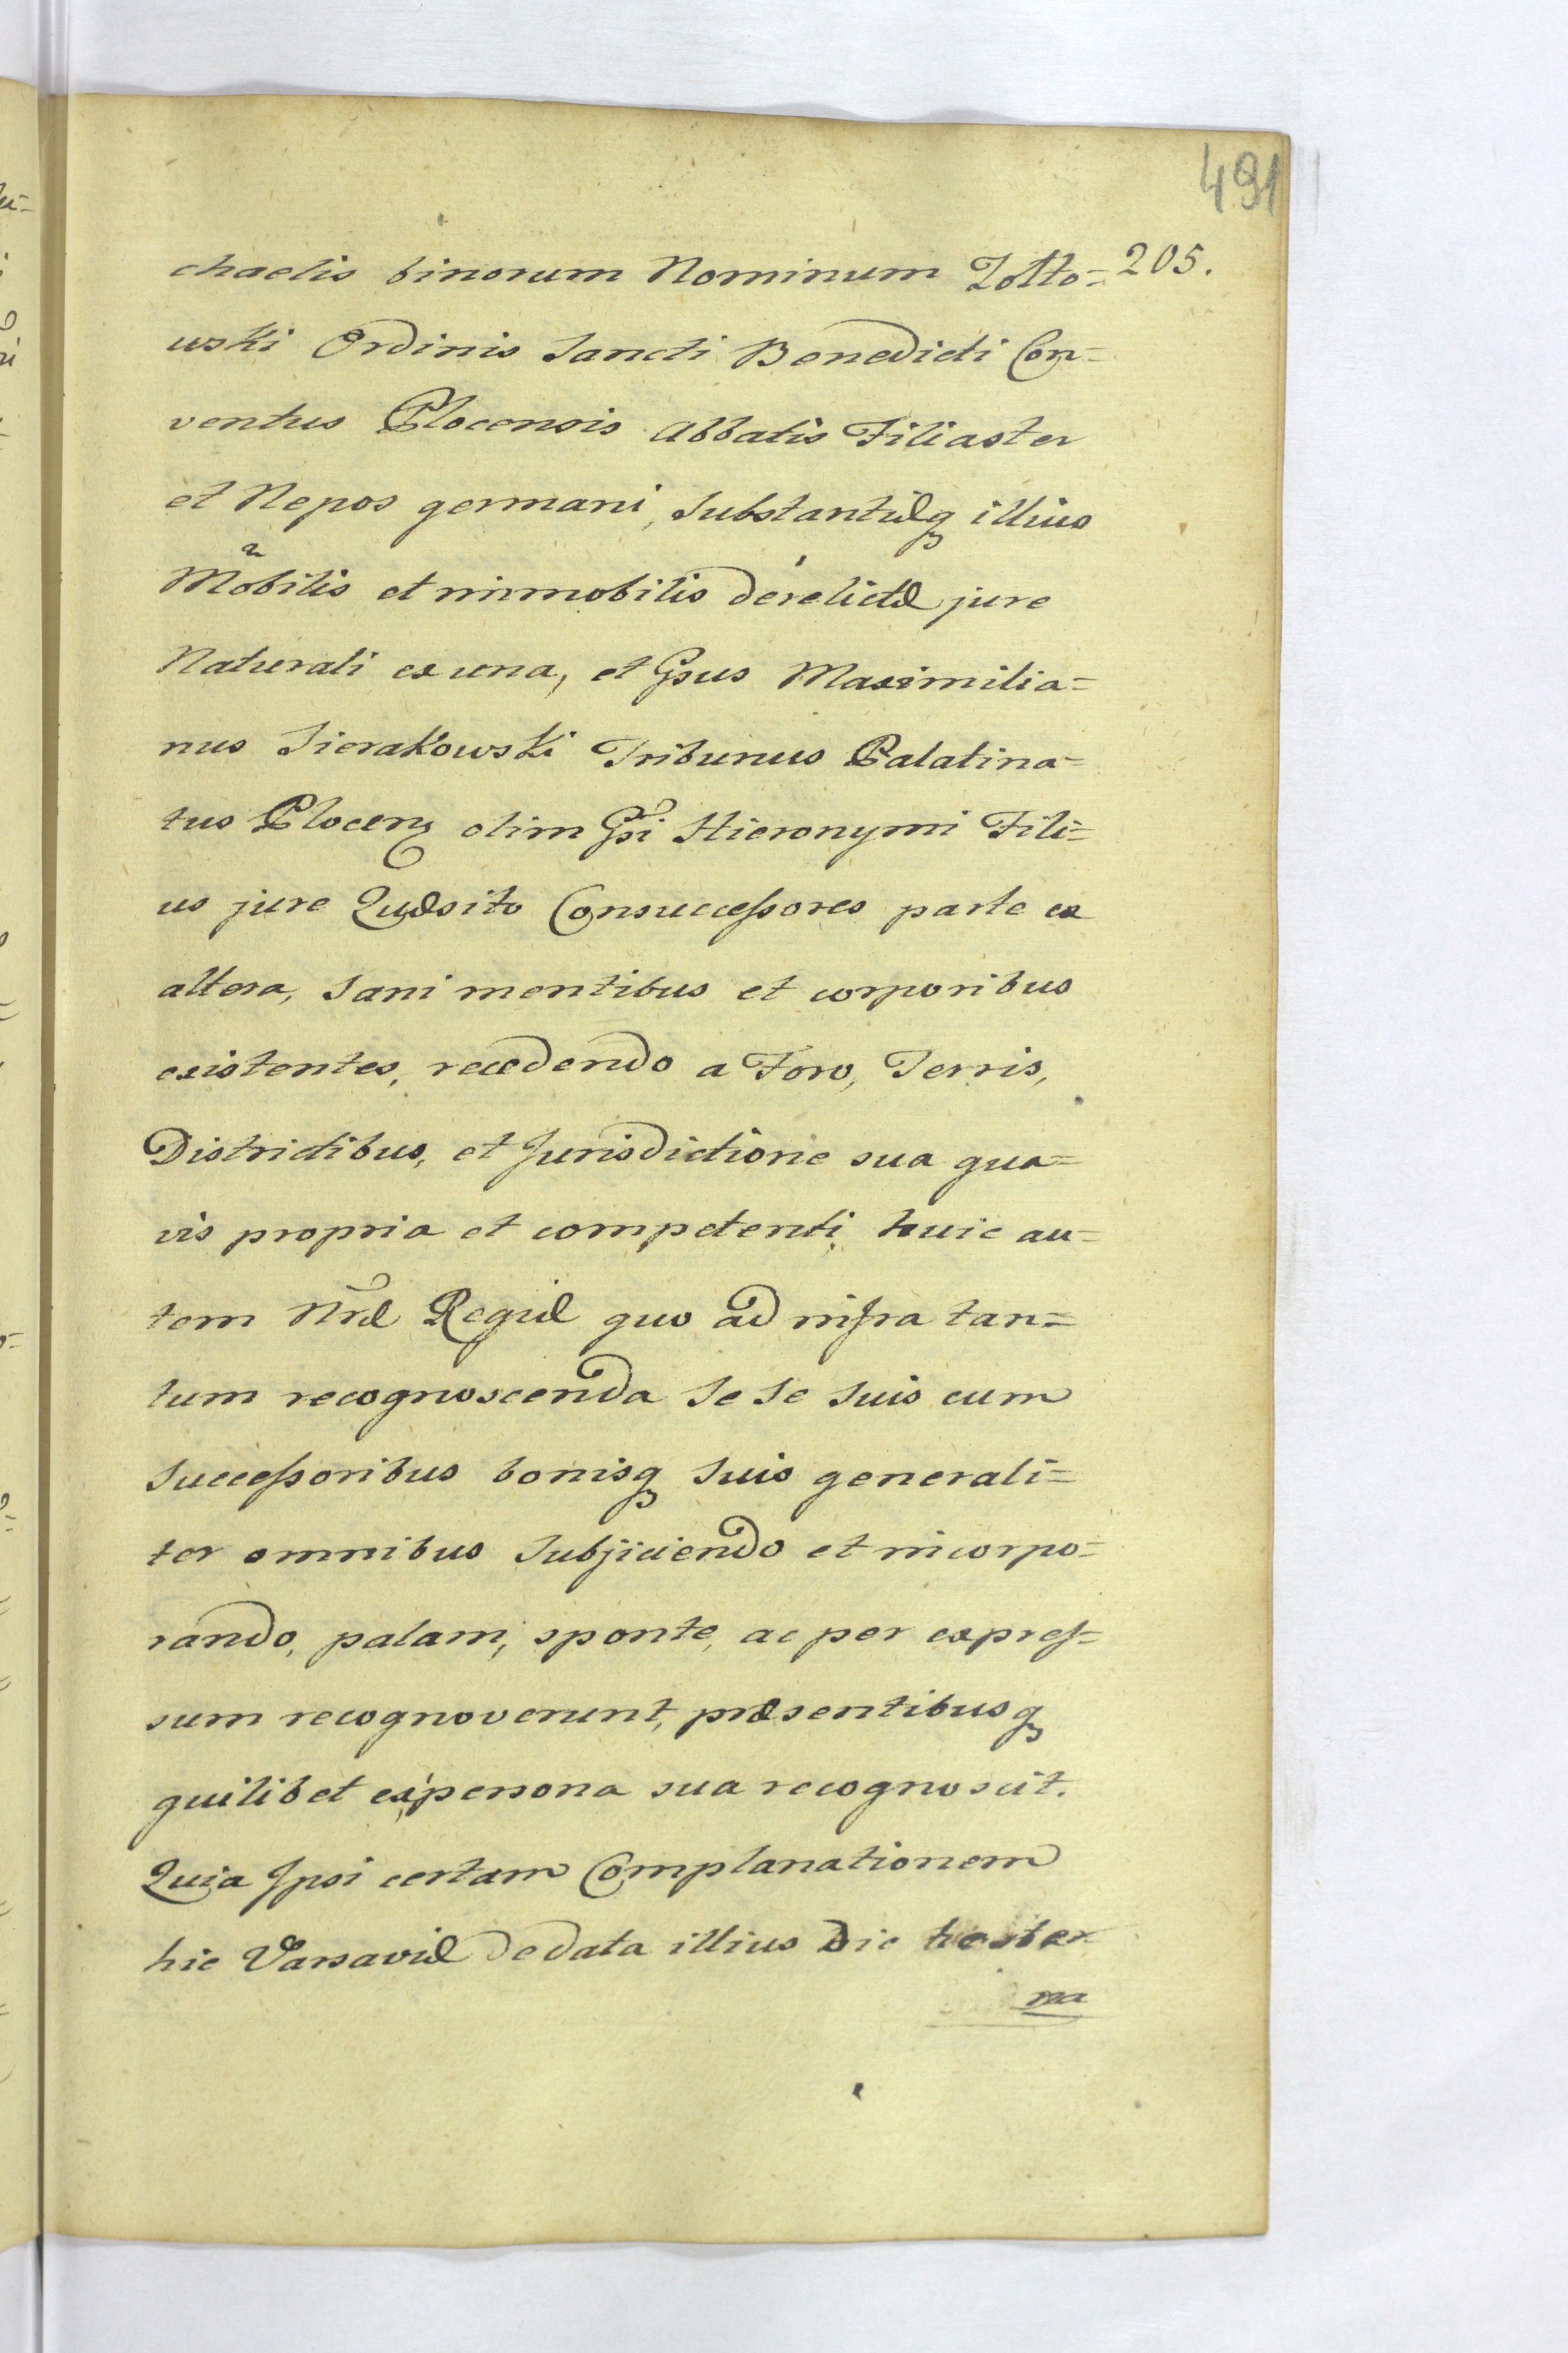 491
205.
chaelis binorum Nominum Zotto=
wski Ordinis Sancti Benedicti Con=
ventus Plocensis Abbatis Filiaster
et Nepos germani, Substantiæq illius
Mobilis et immobilis derelictæ jure
Naturali ex una, et Gsus Maximilia=
nus Sierakowski Tribunus Palatina=
tus Plocen olim Gsi Hieronymi Fili=
us jure Quæsito Consuccessores parte ex
altera, Sani mentibus et corporibus
existentes, recedendo a Foro, Terris,
Districtibus, et Jurisdictione sua qua=
vis propria et competenti, huic au=
tem Nræ Regiæ quo ad infra tan=
tum recognoscenda Se Se Suis cum
Successoribus bonisq Suis generali=
ter omnibus Subjiciendo et incorpo=
rando, palam, sponte, ac per expres=
sum recognoverunt, præsentibusq
quilibet ex persona sua recognoscit.
Quia Ipsi certam Complanationem
hic Varsaviæ de data illius Die hester
na